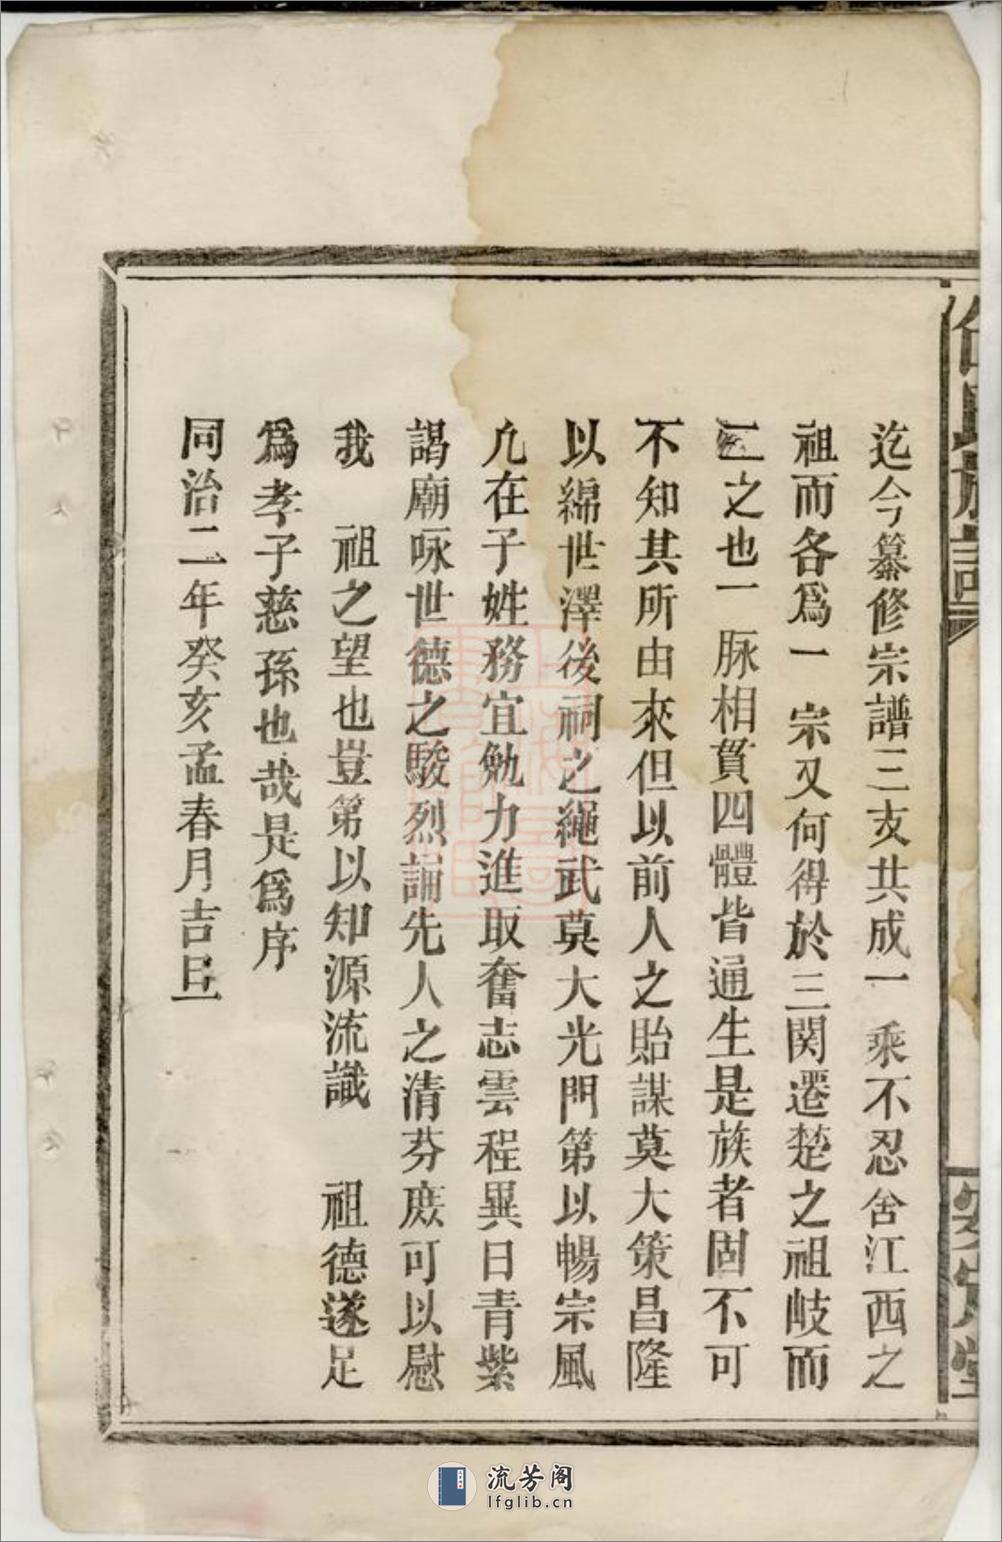 迄今纂修宗譜三支共成一乘不忍舍江西之
祖而各爲一宗又何得於三関遷楚之祖岐而
二之也一脉相貫四體皆通生是族者固不可
不知其所由來但以前人之貽謀莫大策昌隆
以綿世澤後祠之繩武莫大光門第以暢宗風
凢在子姓務宜勉力進取奮志雲程異日青紫
謁廟咏世德之駿烈誦先人之清芬庶可以慰
我　祖之望也豈第以知源流識　祖德遂足
爲孝子慈孫也哉是爲序
同治二年癸亥孟春月吉旦
流芳阁
lfglib.cn